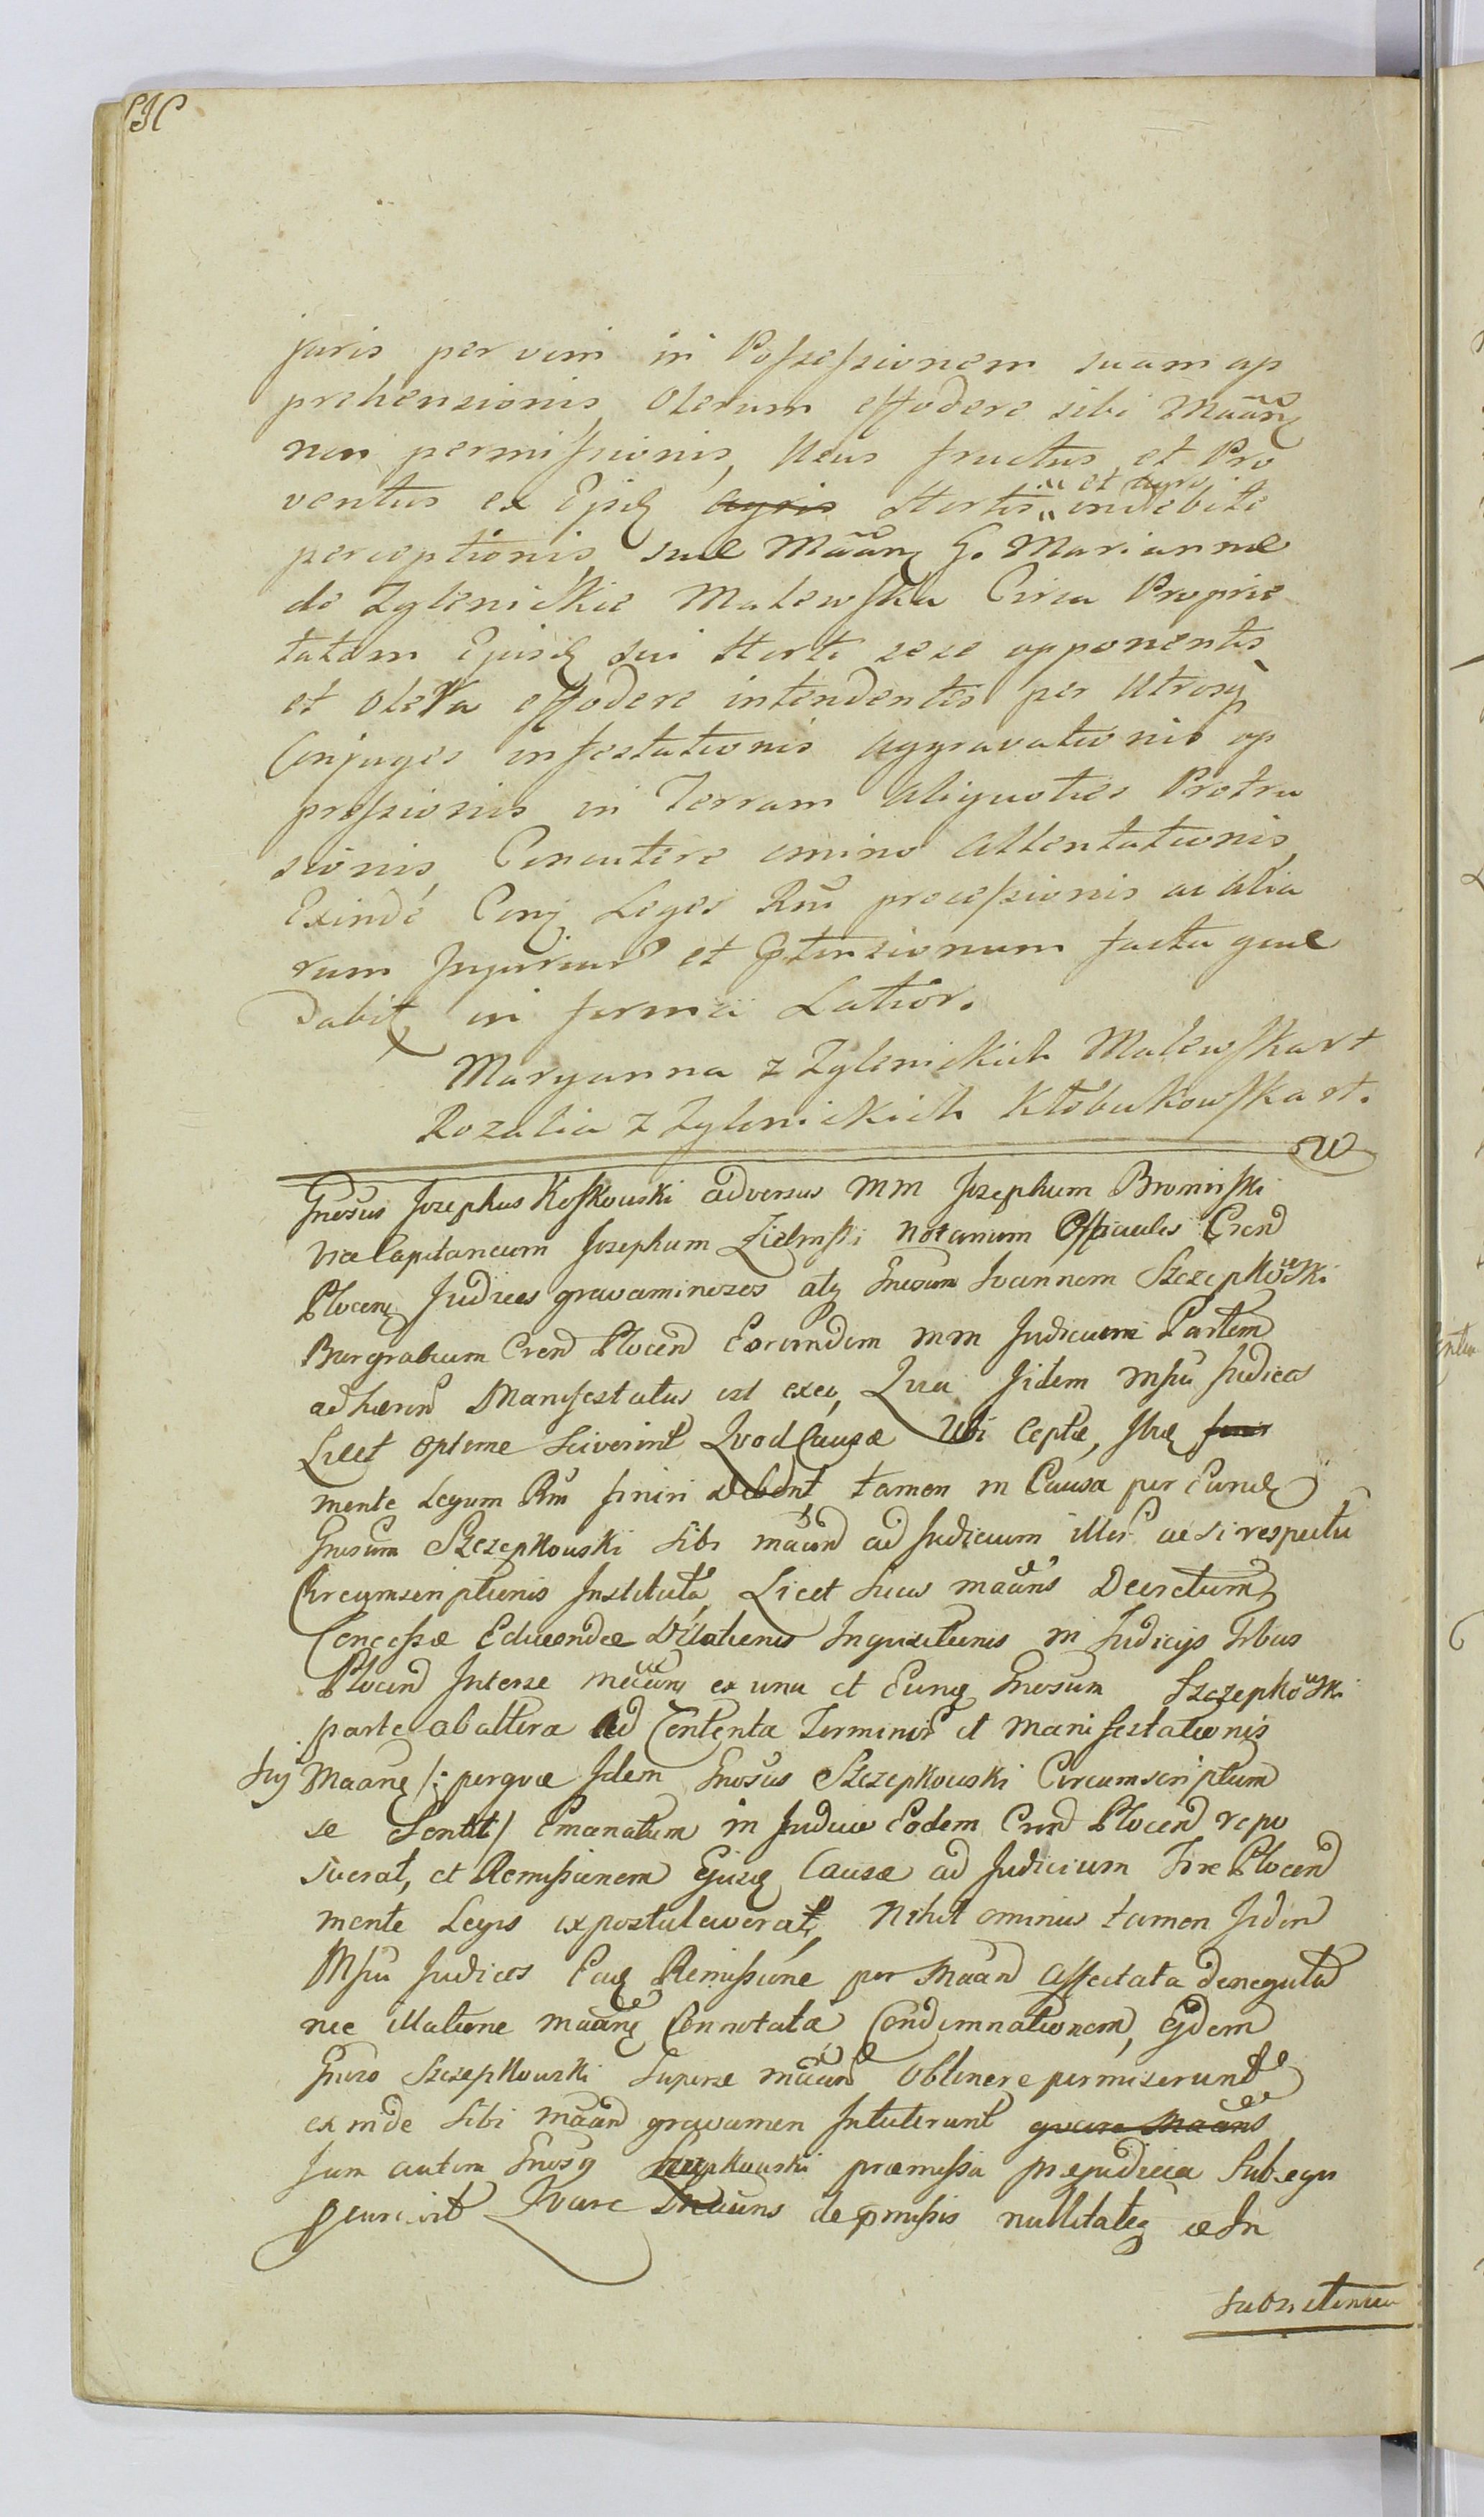 juris per vim in Possessionem suam ap
prehensionis Olerum effodere sibi Maanẽ
non permissionis, Usus fructus et Pro
ventus ex Ejsd agris Hortis et agro indebite
perceptionis suæ Maanẽ G. Mariannæ
de Zglenickie Malewska Circa Proprie
tatem Ejusd sui Horti sese opponentis
et Olera effodere intendentis per Utrosq
Conjuges infestationis aggravationis op
pressionis in Terram aliquoties Protru
sionis, Concutere omino attentationis,
Exindè Conq Leges Rni processionis ac alia
rum Injuriarũ et Ptensionum facta quæ
dabit in forma Latior.
Maryanna z Zglenickich Malewska rt
Rozalia z Zglenickich Kłobukowska rt.
Gnosus Josephus Koskowski adversus MM Josephum Bromirski
ViceCapitaneum Josephum Zielinski Notarium Officiales Crend
Plocen Judices gravaminosos atq Gnosum Joannem Szczepkowski
Burgrabium Cren Plocen Eorundem MM Judicum Partem
adhæren Manifestatus est exeo, Quia Iidem Msti Judices
Licet optime Sciverint Quod Causæ Ubi Ceptæ, Ibiq finir
mente Legum Rni finiri debent, tamen in Causa per Eund
Gnosum Szczepkowski sibi maan ad Judicium illor ac si respectu
Circumscriptionis Instituta, Licet Suus maans Decretum
Concessæ Educendæ Dilationis Inquisitionis in Judicijs Trbus
Plocen Interse maan ex una et Eunq Gnosum Szczepkowski
parte ab altera ad Contenta Terminor et Manifestationis
Suj Maanẽ /: per quæ Idem Gnosus Szczepkowski Circumscriptum
se Sentit / Emanatum in Judicio Eodem Cren Plocen repo
suerat, et Remissionem Ejusd Causæ ad Judicium Tre Plocen
mente Legis expostulaverat, Nihil ominus tamen Iidem
Msti Judices Eaq Remissione per Maan Affectata denegata
nec illatione maanẽ Connotata Condemnationem, Ejdem
Gnoso Szczepkowski Superse maan Obtinere permiserunt
ex inde sibi maan gravamen Intulerunt quare Maans
Jam autem Gnosy Szczepkowski præmissa præjudicia Subsequ
Quare Maans de pmissis nullitateq ac In
subsistentia